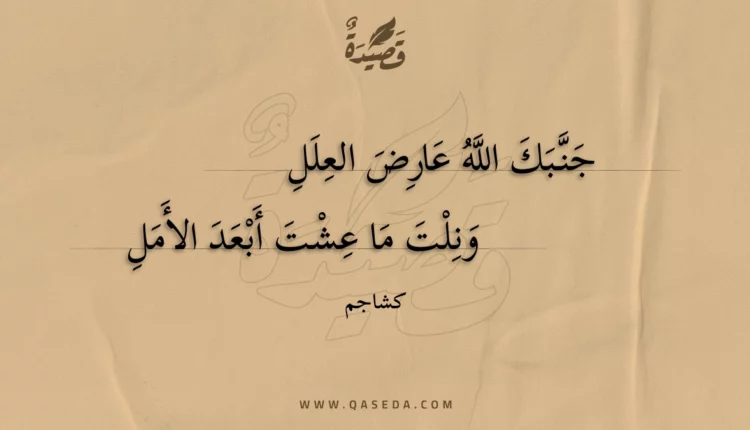 قَصِيدَةٌ
جَنَّبَكَ اللَّهُ عَارِضَ العِلَلِ
وَنِلْتَ مَا عِشْتَ أَبْعَدَ الأَمَلِ
كشاجم
WWW.QASEDA.COM